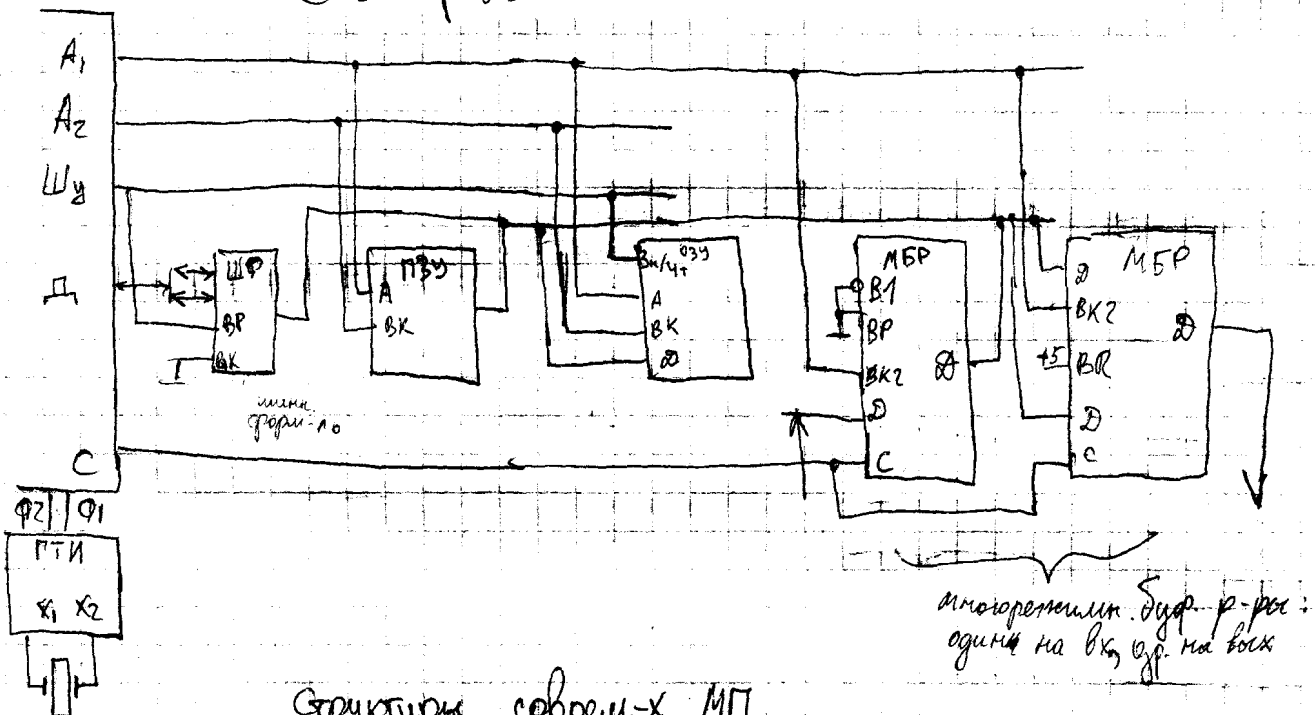 А₁
А₂
Шу
Д
С
Ф2 Ф1
ГТИ
X₁ X₂
ШФ
ВР
ВК
шинн.
форм-ль
ПЗУ
А
ВК
Зп/Чт ОЗУ
А
ВК
Д
МБР
В1
ВР
ВК2
Д
Д
С
МБР
Д
ВК2
Д
+5 ВR
Д
С
многорежимн. буф. р-ры:
один на вх, др. на вых
Структуры соврем-х МП